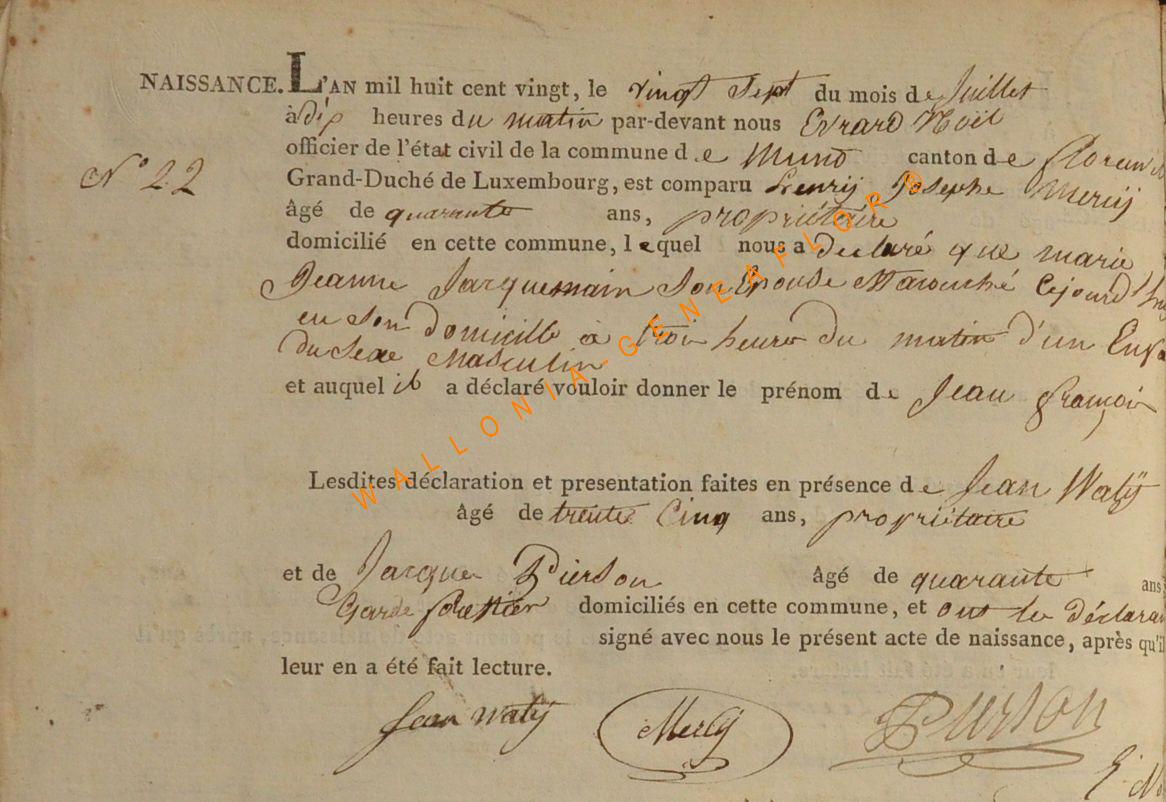 NAISSANCE. L'AN mil huit cent vingt, le vingt sept du mois de Juillet
à dix heures du matin par-devant nous Evrard Noël
N° 22
officier de l'état civil de la commune de Muno canton de Floren
Grand-Duché de Luxembourg, est comparu henrij Josephe Mercij
âgé de quarante ans, propriétaire
domicilié en cette commune, lequel nous a declaré que marie
Jeanne Jacquemain Son Epouse Cejourd'hu
en son domicille a trois heures du matin d'un Enfa
du Sexe Masculin
et auquel il a déclaré vouloir donner le prénom de Jean françois
Lesdites déclaration et presentation faites en présence de Jean Watÿ
âgé de trente Cinq ans, propriétaire
et de Jacque Pierson âgé de quarante ans,
Garde forestier domiciliés en cette commune, et ont les déclaran
signé avec nous le présent acte de naissance, après qu'il
leur en a été fait lecture.
Jean watÿ Mercij Pierson
E. No
WALLONIA-GENEAFLOR®